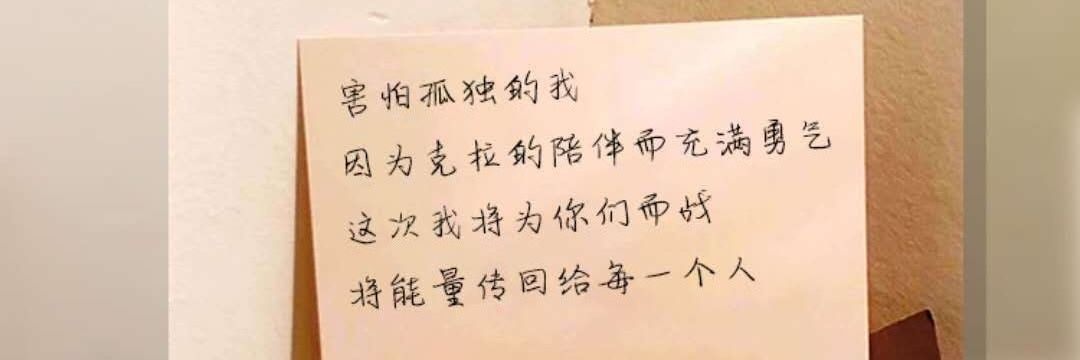 害怕孤独的我
因为克拉的陪伴而充满勇气
这次我将为你们而战
将能量传回给每一个人